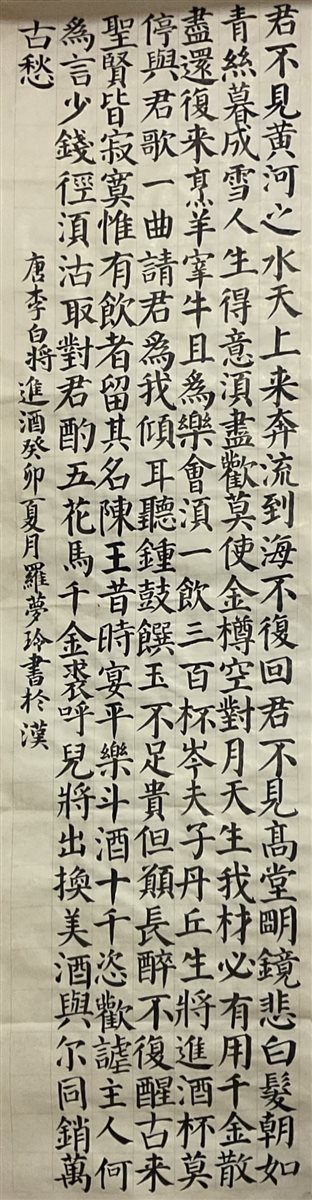 君不見黃河之水天上来奔流到海不復回君不見髙堂眀鏡悲白髮朝如
青絲暮成雪人生得意湏盡歡莫使金樽空對月天生我材必有用千金散
盡還復来烹羊宰牛且為樂會湏一飲三百杯岑夫子丹丘生將進酒杯莫
停與君歌一曲請君為我傾耳聽鍾鼓饌玉不足貴但願長醉不復醒古来
聖賢皆寂寞惟有飲者留其名陳王昔時宴平樂斗酒十千恣歡謔主人何
為言少錢徑湏沽取對君酌五花馬千金裘呼兒將出換美酒與尔同銷萬
古愁
唐李白將進酒癸卯夏月羅夢玲書於漢